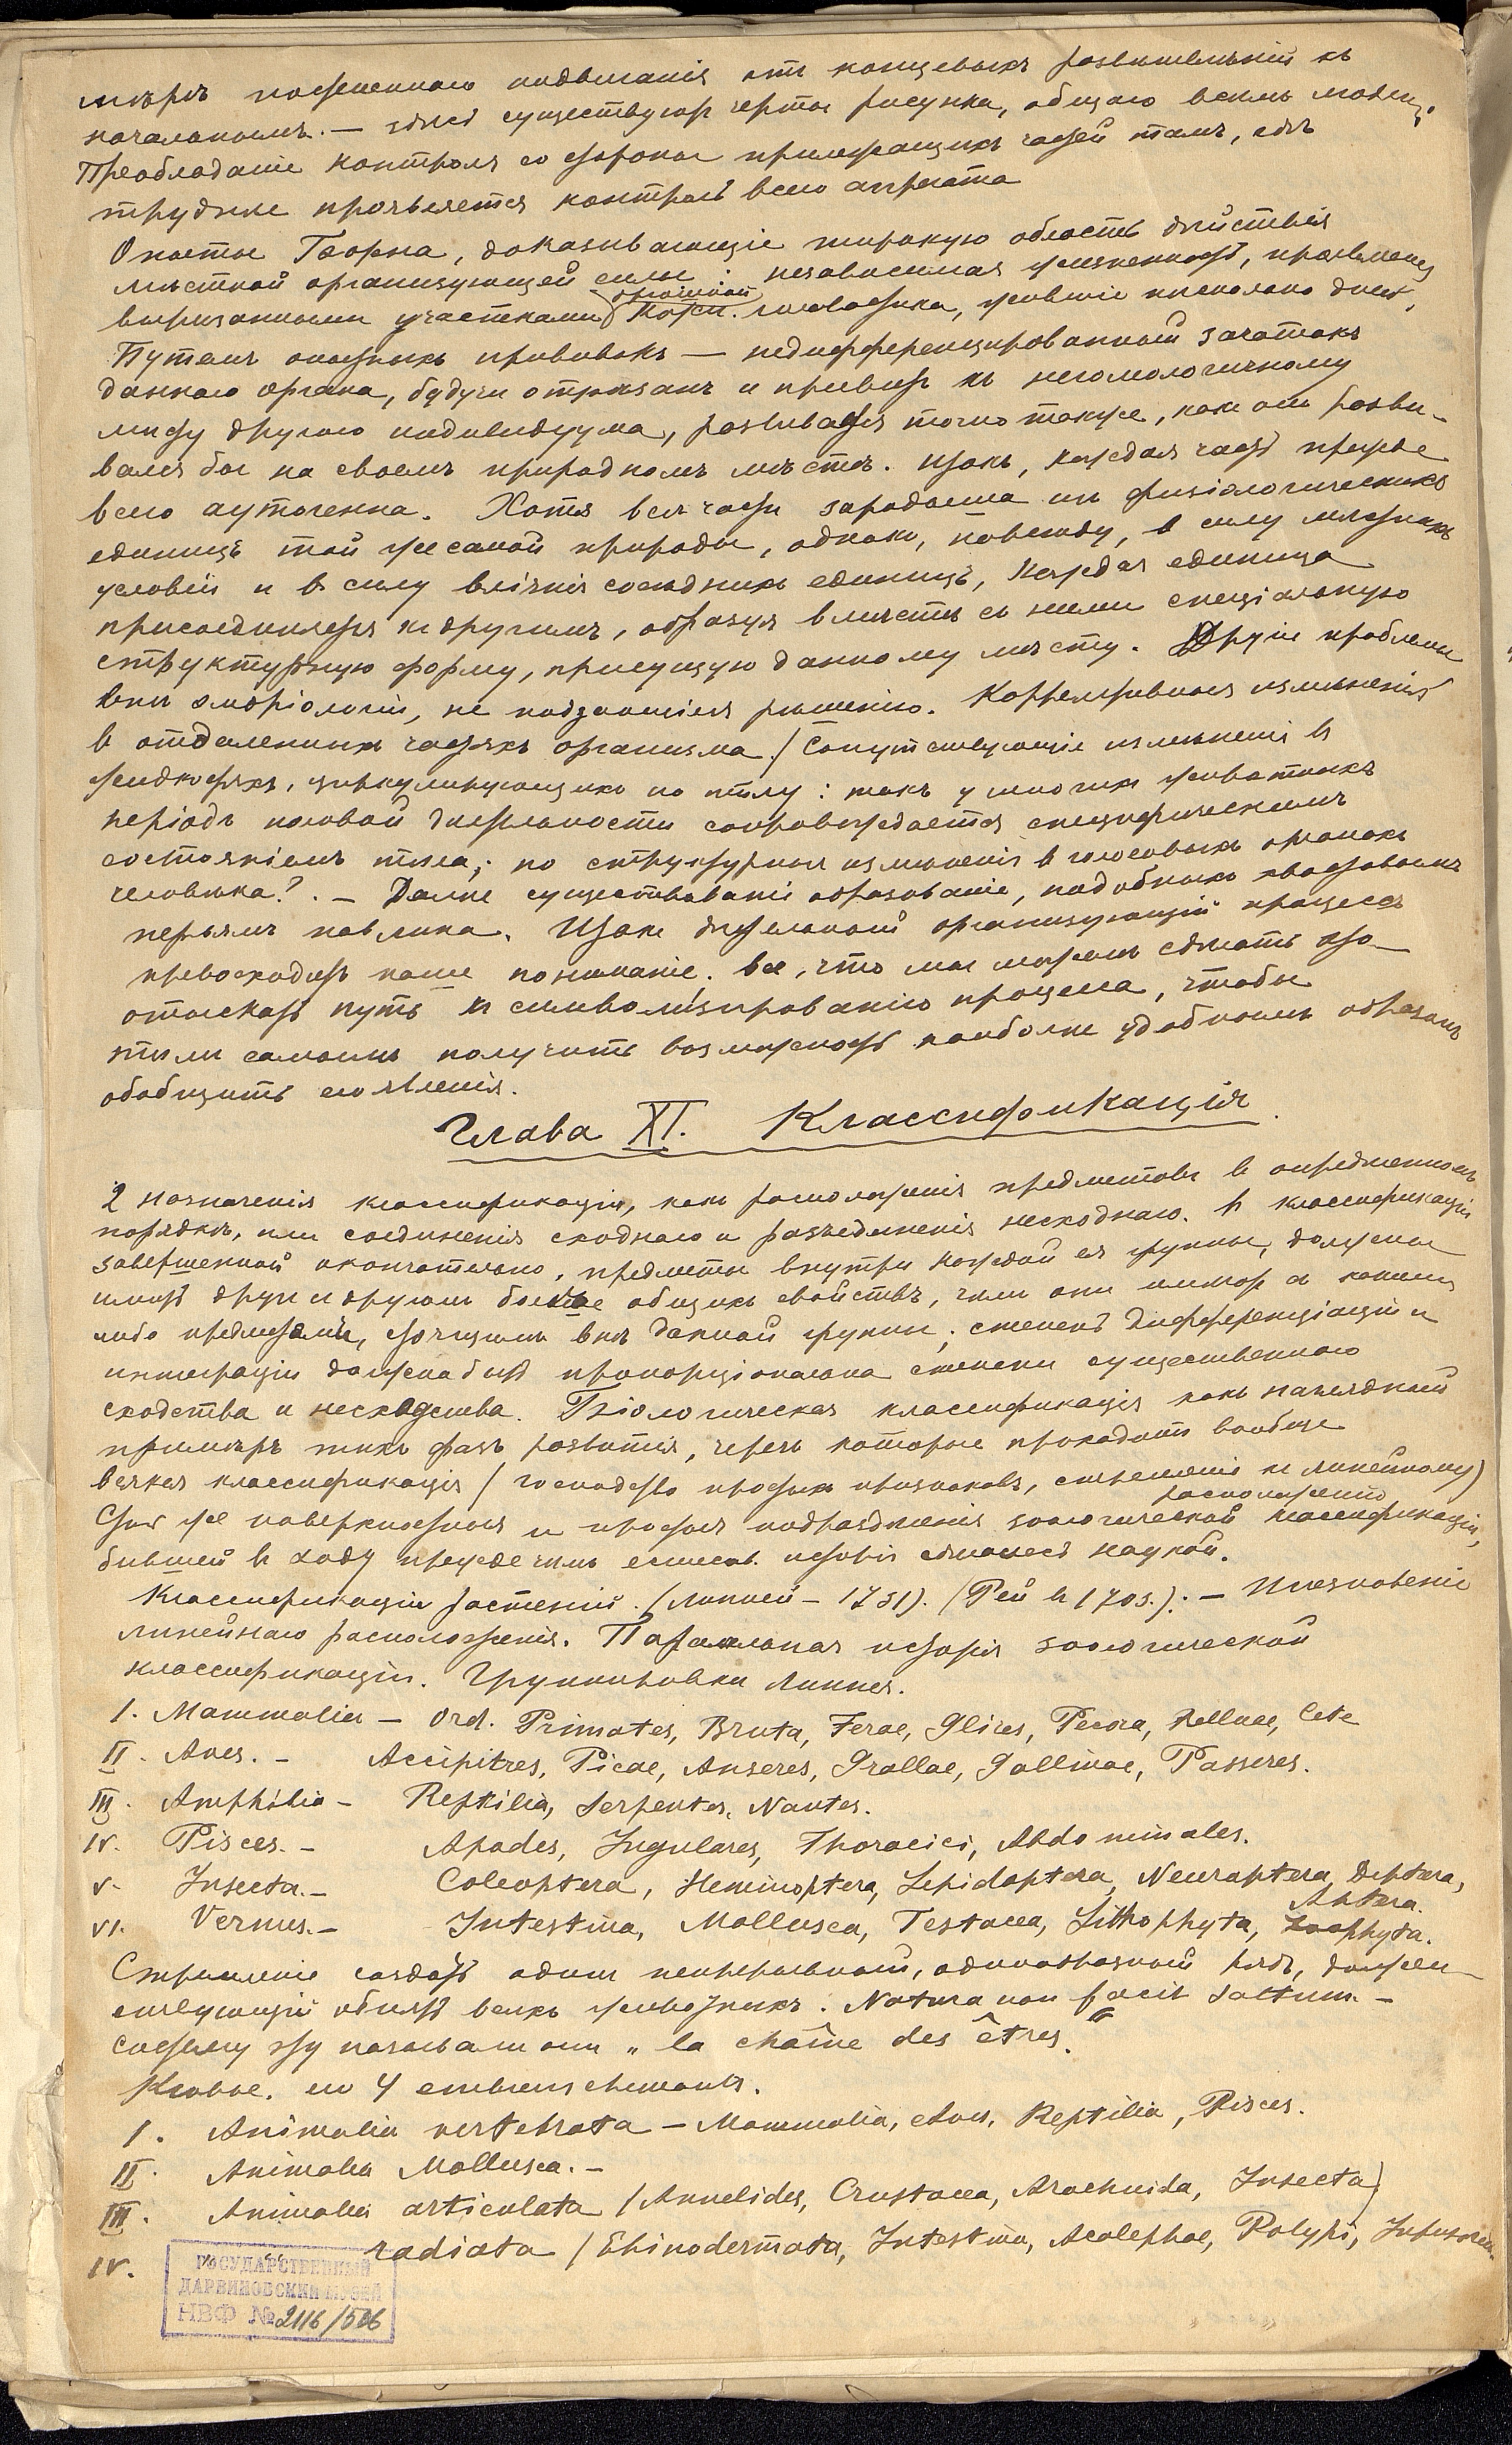 мѣрѣ постепеннаго подвиганія отъ концевыхъ развѣтвленій къ
начальнымъ. — здѣсь существуютъ черты рисунка, общаго всему
Преобладаніе контроля со стороны прилежащихъ частей тамъ, гдѣ
труднѣе проявляется контроль всего аггрегата
Опыты Борна, доказывающіе широкую область дѣйствія
мѣстной организующей силы: независимая жизненность, проявленная
вырѣзанными участками головастика, жившіе нѣсколько дней,
Путемъ опытныхъ прививокъ — недифференцированный зачатокъ
даннаго органа, будучи отрѣзанъ и привитъ къ негомологичному
мѣсту другого индивидуума, развивался точно также, какъ онъ разви-
вался бы на своемъ природномъ мѣстѣ. Итакъ, каждая часть прежде
всего аутогенна. Хотя всѣ части зародыша изъ физіологическихъ
единицъ той же самой природы, однако, повсюду, в силу мѣстныхъ
условій и въ силу вліянія сосѣднихъ единицъ, каждая единица
присоединяется къ другимъ, образуя вмѣстѣ съ ними спеціальную
структурную форму, присущую данному мѣсту. Другія проблемы
внѣ эмбріологіи, не поддающіяся рѣшенію. Коррелятивныя измѣненія
в отдаленныхъ частяхъ организма. / Сопутствующіе измѣненія въ
жидкостяхъ, циркулирующихъ по тѣлу: такъ у многихъ животныхъ
періодъ половой дѣятельности сопровождается специфическимъ
состояніемъ тѣла; но структурныя измѣненія в голосовыхъ органахъ
человѣка?. — Далѣе существованіе образованій, подобныхъ хвостовымъ
перьямъ павлина. Итакъ дѣятельный организующій процессъ
превосходитъ наше пониманіе; все, что мы можемъ сдѣлать это —
отыскать путь къ символизированію процесса, чтобы
тѣмъ самымъ получить возможность наиболѣе удобнымъ образомъ
обобщить его явленія.
Глава XI. Классификація.
2 назначенія классификаціи, какъ расположенія предметовъ въ опредѣленномъ
порядкѣ, или соединенія сходнаго и разъединенія несходнаго. В классификаціи
завершенной окончательно, предметы внутри каждой ея группы, должны
имѣть другъ съ другомъ больше общихъ свойствъ, чѣмъ они имѣютъ съ какими
либо предметами, стоящими внѣ данной группы; степень дифференціаціи и
интеграціи должна быть пропорціональна степени существеннаго
сходства и несходства. Біологическая классификація какъ наглядный
примѣръ тѣхъ фазъ развитія, черезъ которые проходитъ вообще
всякая классификація / господство простыхъ признаковъ, стремленіе къ линейному
расположенію)
Столь же поверхностныя и простыя подраздѣленія зоологической классификаціи,
бывшей въ ходу прежде чѣмъ естеств. исторія сдѣлалась наукой.
Классификаціи растеній. (Линней — 1731). (Рей въ 1703.). — Исчезновеніе
линейнаго расположенія. Параллельная исторія зоологической
классификаціи. Группировки Линнея.
I. Mammalia — Ord. Primates, Bruta, Ferae, Glires, Pecora, Belluae, Cete
II. Aves. — Accipitres, Picae, Anseres, Grallae, Gallinae, Passeres.
III. Amphibia — Reptilia, Serpentes, Nantes.
IV. Pisces. — Apodes, Jugulares, Thoracici, Abdominales.
V. Insecta. — Coleoptera, Hemiroptera, Lepidoptera, Neuroptera, Diptera,
Aptera.
VI. Vermes. — Intestina, Mollusca, Testacea, Lithophyta, Zoophyta.
Стремленіе создать одинъ непрерывный, однообразный рядъ, долженъ-
ствующій обнять всѣхъ животныхъ. Natura non facit saltum. —
Систему эту называли они „la chaîne des êtres."
Кювье. его 4 embranchements.
I. Animalia vertebrata — Mammalia, Aves, Reptilia, Pisces.
II. Animalia Mollusca. —
III. Animalia articulata (Annelides, Crustacea, Arachnida, Insecta)
IV. radiata (Ehinodermata, Intestina, Acalephae, Polypi, Infusoria.
ГОСУДАРСТВЕННЫЙ
ДАРВИНОВСКИЙ МУЗЕЙ
НВФ № 2116/506